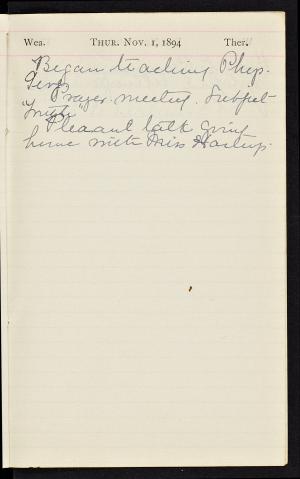 Wea. Thur. Nov. 1, 1894 Ther.
Began teaching Phys.
Prayer-meeting. Subject
"Truth"
Pleasant talk going
home with Miss